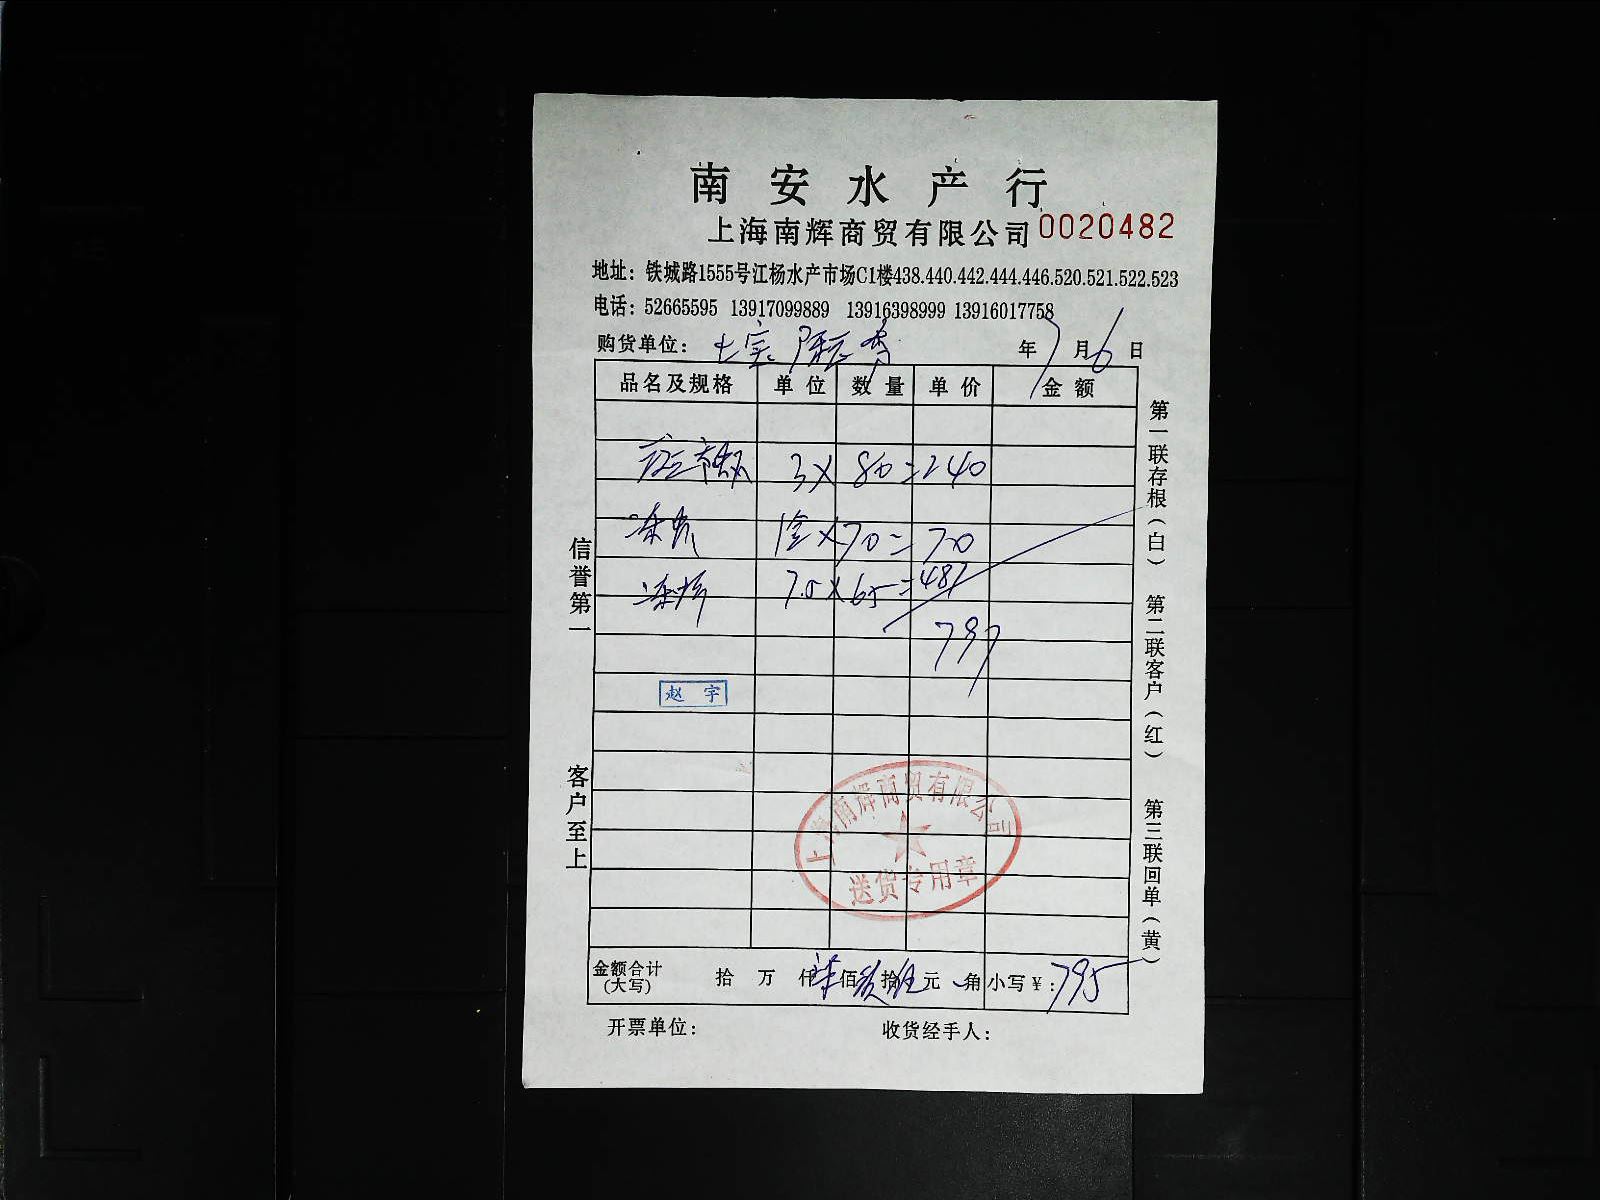 南安水产行
上海南辉商贸有限公司 0020482
地址：铁城路1555号江杨水产市场C1楼438.440.442.444.446.520.521.522.523
电话：52665595 13917099889 13916398999 13916017758
购货单位： 年 7 月 6 日
品名及规格 单位 数量 单价 金额
3 X 80 = 240
1 X 70 = 70
7.5 X 65 = 487
797
赵宇
上海南辉商贸有限公司
送货专用章
金额合计（大写） 拾 万 仟 柒 佰 玖 拾 伍 元 角 小写￥：795
开票单位： 收货经手人：
信誉第一 客户至上
第一联存根（白） 第二联客户（红） 第三联回单（黄）